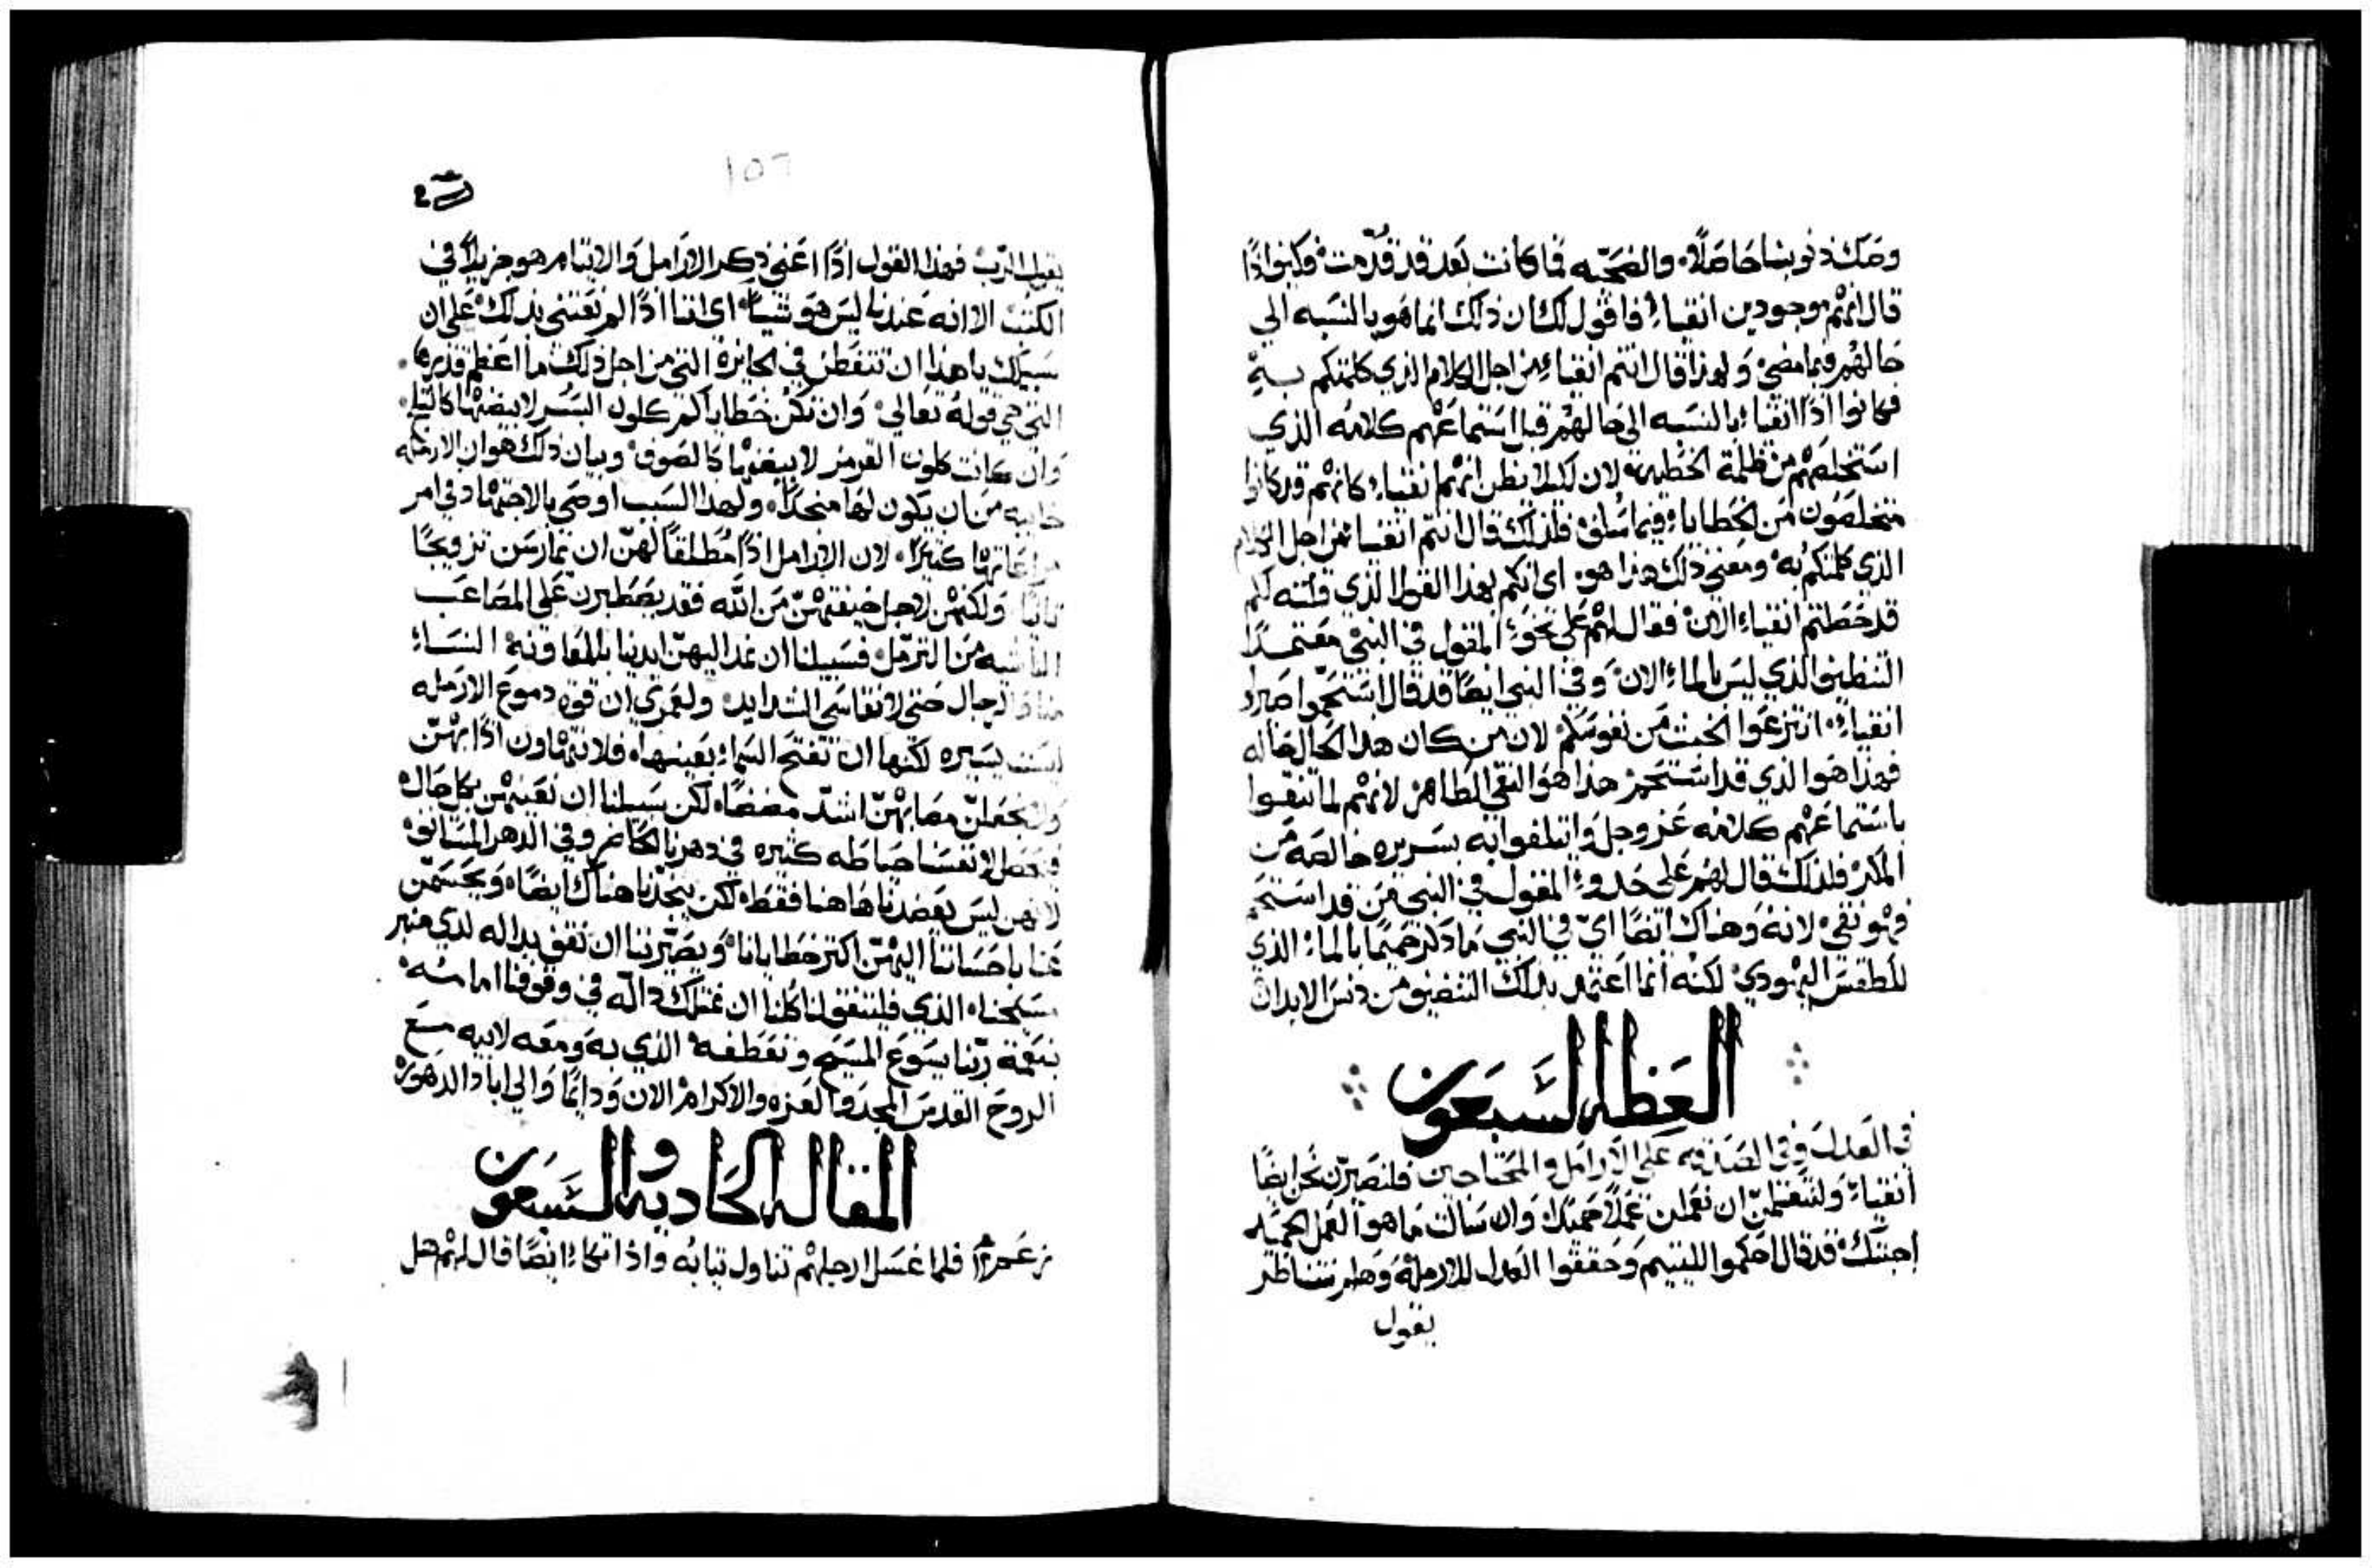 وصك ذنوبنا حاصلاً والضحيه فما كانت بعد قد قُدّمت فكيف اذًا
قال انهم موجودين انقياء فاقول لك ان ذلك انما هو بالنسبه الي
حالهم فيما مضي ولهذا قال انتم انقياء من اجل الكلام الذي كلمتكم به
فكانوا اذًا انقياء بالنسبه الي حالهم قبل استماعهم كلامه الذي
استخلصهم من ظلمة الخطيه لان ليلا يظن انهم انقياء كانهم قد كانوا
متخلصون من الخطايا فيما سلف فلذلك قال انتم انقيا من اجل الكلام
الذي كلمتكم به ومعني ذلك هذا هو اي انكم بهذا القول الذي قلته لكم
قد حصلتم انقياء الان فقال لهم علي نحو المقول في النبي معتمدًا
التنظيف الذي ليس بالماء الان وفي النبي ايضًا قد قال استحموا صيروا
انقياء انتزعوا الخبث من نفوسكم لان من كان هذا الحال حاله
فهذا هو الذي قد استحم هذا هو النقي الطاهر لانهم لما تنقوا
باستماعهم كلامه عز وجل واتبلغوا به بسريره خالصه من
المكر فلذلك قال لهم علي حدو المقول في النبي من قد استحم
فهو نقي لانه وهناك ايضًا اي في النبي ما ذكر حميمًا بالماء الذي
للطقس اليهودي لكنه انما اعتمد بذلك التنضيف من دنس الابدان
العظه السبعون
في العدل وفي الصدقه علي الارامل والمحتاجين فلنصيرن نحن ايضًا
انقياء ولنتعلمن ان نعملن عملاً حميدًا وان سالت ما هو العمل الحميد
اجبتك قد قال احكموا لليتيم وحققوا العدل للارملة وهلم نتناظر
يقول
١٥٦
يقول الرب فهذا القول اذًا اعني ذكر الارامل والايتام هو جزيلاً في
الكتب الا انه عندنا ليس هو شياً اي اننا اذًا لم نعتني بذلك علي ان
سبيلك يا هذا ان تتفطن في الجايزة التي من اجل ذلك ما اعظم قدرها
التي هي قوله تعالي وان تكن خطاياكم كلون البسر لابيضنها كالثلج
وان كانت كلون القرمز لابيضنها كالصوف وبيان ذلك هو ان الارمله
خايبه من ان يكون لها منجدًا ولهذا السبب اوصي بالاجتهاد في امر
مراعاتها كثيرًا لان الارامل اذًا مُطلقًا لهنّ ان تمارسن تزويجًا
ثانيًا ولكنهن لاجل خيفتهن من الله فقد يصطبرن علي المصاعب
الناشيه من الترمّل فسبيلنا ان نمد اليهن ايدينا بالمعاونة النساء
منا والرجال حتي لا نقاسي الشدايد ولعمري ان قوة دموع الارمله
ليست يسيره لكنها ان تفتح السماء بعينها فلا نتهاون اذًا بهنّ
ولا نجعلن مصابهن اشدّ مضضًا لكن سبيلنا ان نعينهن بكل حال
فنحصل لانفسنا حياطه كثيره في دهرنا الحاضر وفي الدهر المستانف
لانهن ليس يعضدنا هاهنا فقط لكن ينجدنا هناك ايضًا ويحسمن
عنا باحساننا اليهن اكثر خطايانا ويصيّرننا ان نقف بداله لدي منبر
مسيحنا الذي فليتفق لنا كلنا ان نمتلك داله في وقوفنا امامه
بنعمة ربنا يسوع المسيح وتعطفه الذي به ومعه لابيه مع
الروح القدس المجد والعزه والاكرام الان ودايمًا والي اباد الدهور
المقاله الحاديه والسبعون
فلما غسل ارجلهم تناول ثيابه واذ اتكاء ايضًا قال لهم هل